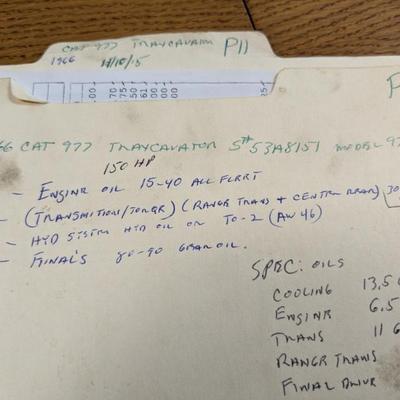 CAT 977 TRAXCAVATOR P11
1966 4/10/15
66 CAT 977 TRAXCAVATOR S# 53A8151 MODEL 97
150 HP
- ENGINE OIL 15-40 ALL FLEET
- (TRANSMITIONS/TORQR) (RANGE TRANS + CENTER REAR) 30
- HYD SISTEM HYD OIL OR TO-2 (AW 46)
- FINAL'S 80-90 GEAR OIL.
SPEC: OILS
COOLING 13.5
ENGINE 6.5
TRANS 11 G
RANGE TRANS
FINAL DRIVE